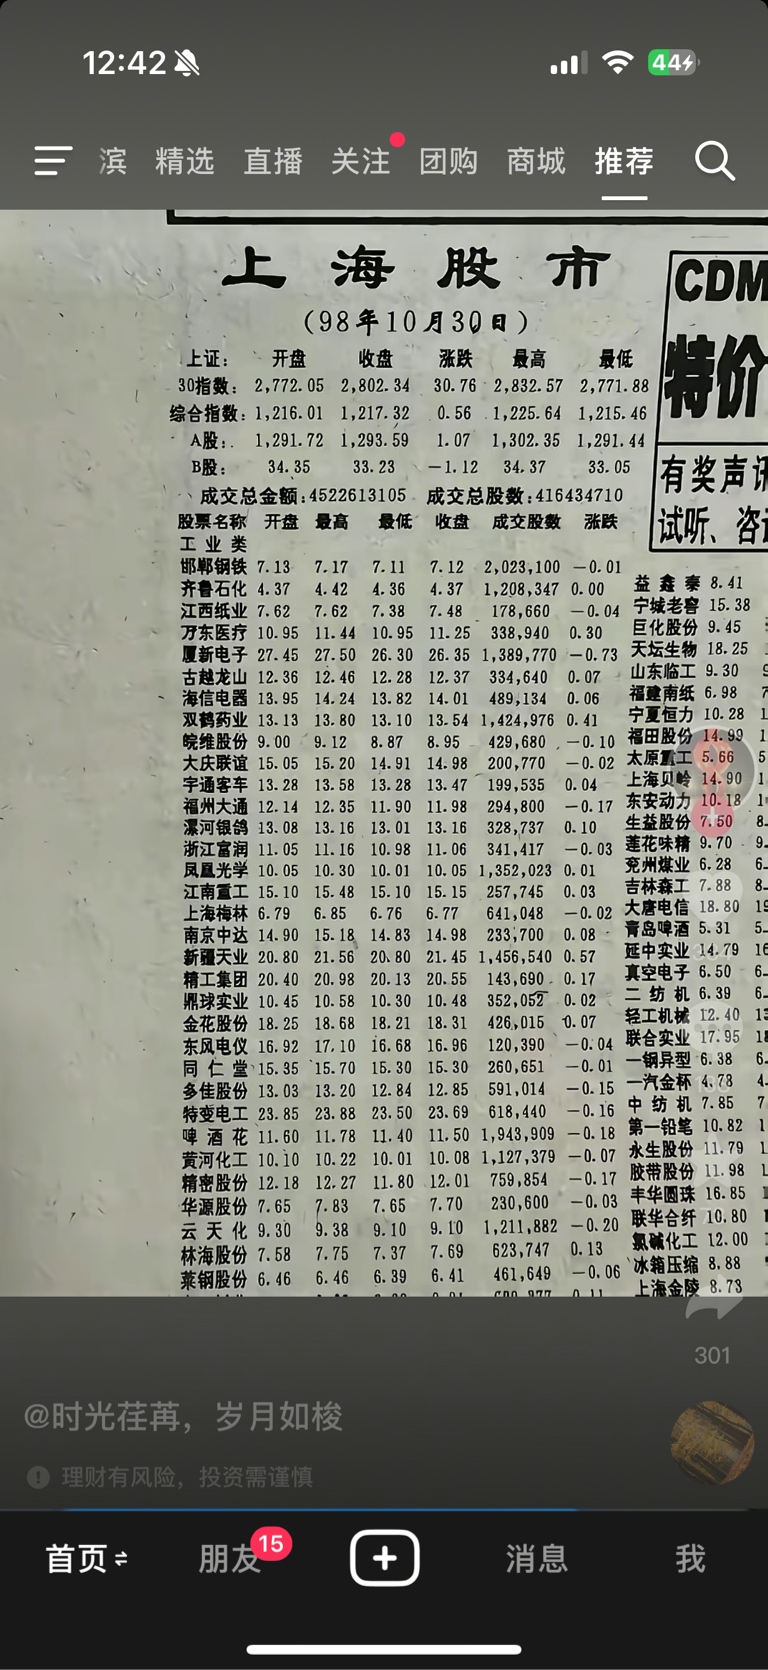 12:42
44
滨 精选 直播 关注 团购 商城 推荐
上海股市
(98年10月30日)
上证: 开盘 收盘 涨跌 最高 最低
30指数: 2,772.05 2,802.34 30.76 2,832.57 2,771.88
综合指数: 1,216.01 1,217.32 0.56 1,225.64 1,215.46
A股: 1,291.72 1,293.59 1.07 1,302.35 1,291.44
B股: 34.35 33.23 -1.12 34.37 33.05
成交总金额:4522613105 成交总股数:416434710
股票名称 开盘 最高 最低 收盘 成交股数 涨跌
工业类
邯郸钢铁 7.13 7.17 7.11 7.12 2,023,100 -0.01
齐鲁石化 4.37 4.42 4.36 4.37 1,208,347 0.00
江西纸业 7.62 7.62 7.38 7.48 178,660 -0.04
万东医疗 10.95 11.44 10.95 11.25 338,940 0.30
厦新电子 27.45 27.50 26.30 26.35 1,389,770 -0.73
古越龙山 12.36 12.46 12.28 12.37 334,640 0.07
海信电器 13.95 14.24 13.82 14.01 489,134 0.06
双鹤药业 13.13 13.80 13.10 13.54 1,424,976 0.41
皖维股份 9.00 9.12 8.87 8.95 429,680 -0.10
大庆联谊 15.05 15.20 14.91 14.98 200,770 -0.02
宇通客车 13.28 13.58 13.28 13.47 199,535 0.04
福州大通 12.14 12.35 11.90 11.98 294,800 -0.17
漯河银鸽 13.08 13.16 13.01 13.16 328,737 0.10
浙江富润 11.05 11.16 10.98 11.06 341,417 -0.03
凤凰光学 10.05 10.30 10.01 10.05 1,352,023 0.01
江南重工 15.10 15.48 15.10 15.15 257,745 0.03
上海梅林 6.79 6.85 6.76 6.77 641,048 -0.02
南京中达 14.90 15.18 14.83 14.98 233,700 0.08
新疆天业 20.80 21.56 20.80 21.45 1,456,540 0.57
精工集团 20.40 20.98 20.13 20.55 143,690 0.17
鼎球实业 10.45 10.58 10.30 10.48 352,052 0.02
金花股份 18.25 18.68 18.21 18.31 426,015 0.07
东风电仪 16.92 17.10 16.68 16.96 120,390 -0.04
同仁堂 15.35 15.70 15.30 15.30 260,651 -0.01
多佳股份 13.03 13.20 12.84 12.85 591,014 -0.15
特变电工 23.85 23.88 23.50 23.69 618,440 -0.16
啤酒花 11.60 11.78 11.40 11.50 1,943,909 -0.18
黄河化工 10.10 10.22 10.01 10.08 1,127,379 -0.07
精密股份 12.18 12.27 11.80 12.01 759,854 -0.17
华源股份 7.65 7.83 7.65 7.70 230,600 -0.03
云天化 9.30 9.38 9.10 9.10 1,211,882 -0.20
林海股份 7.58 7.75 7.37 7.69 623,747 0.13
莱钢股份 6.46 6.46 6.39 6.41 461,649 -0.06
CDM
特价
有奖声讯
试听、咨
益鑫泰 8.41
宁城老窖 15.38
巨化股份 9.45
天坛生物 18.25
山东临工 9.30
福建南纸 6.98
宁夏恒力 10.28
福田股份 14.99
太原重工 5.66
上海贝岭 14.90
东安动力 10.18
生益股份 7.50
莲花味精 9.70
兖州煤业 6.28
吉林森工 7.88
大唐电信 18.80
青岛啤酒 5.31
延中实业 14.79
真空电子 6.50
二纺机 6.39
轻工机械 12.40
联合实业 17.95
一钢异型 6.38
一汽金杯 4.78
中纺机 7.85
第一铅笔 10.82
永生股份 11.79
胶带股份 11.98
丰华圆珠 16.85
联华合纤 10.80
氯碱化工 12.00
冰箱压缩 8.88
上海金陵 8.73
301
@时光荏苒，岁月如梭
理财有风险，投资需谨慎
首页 朋友 15 消息 我